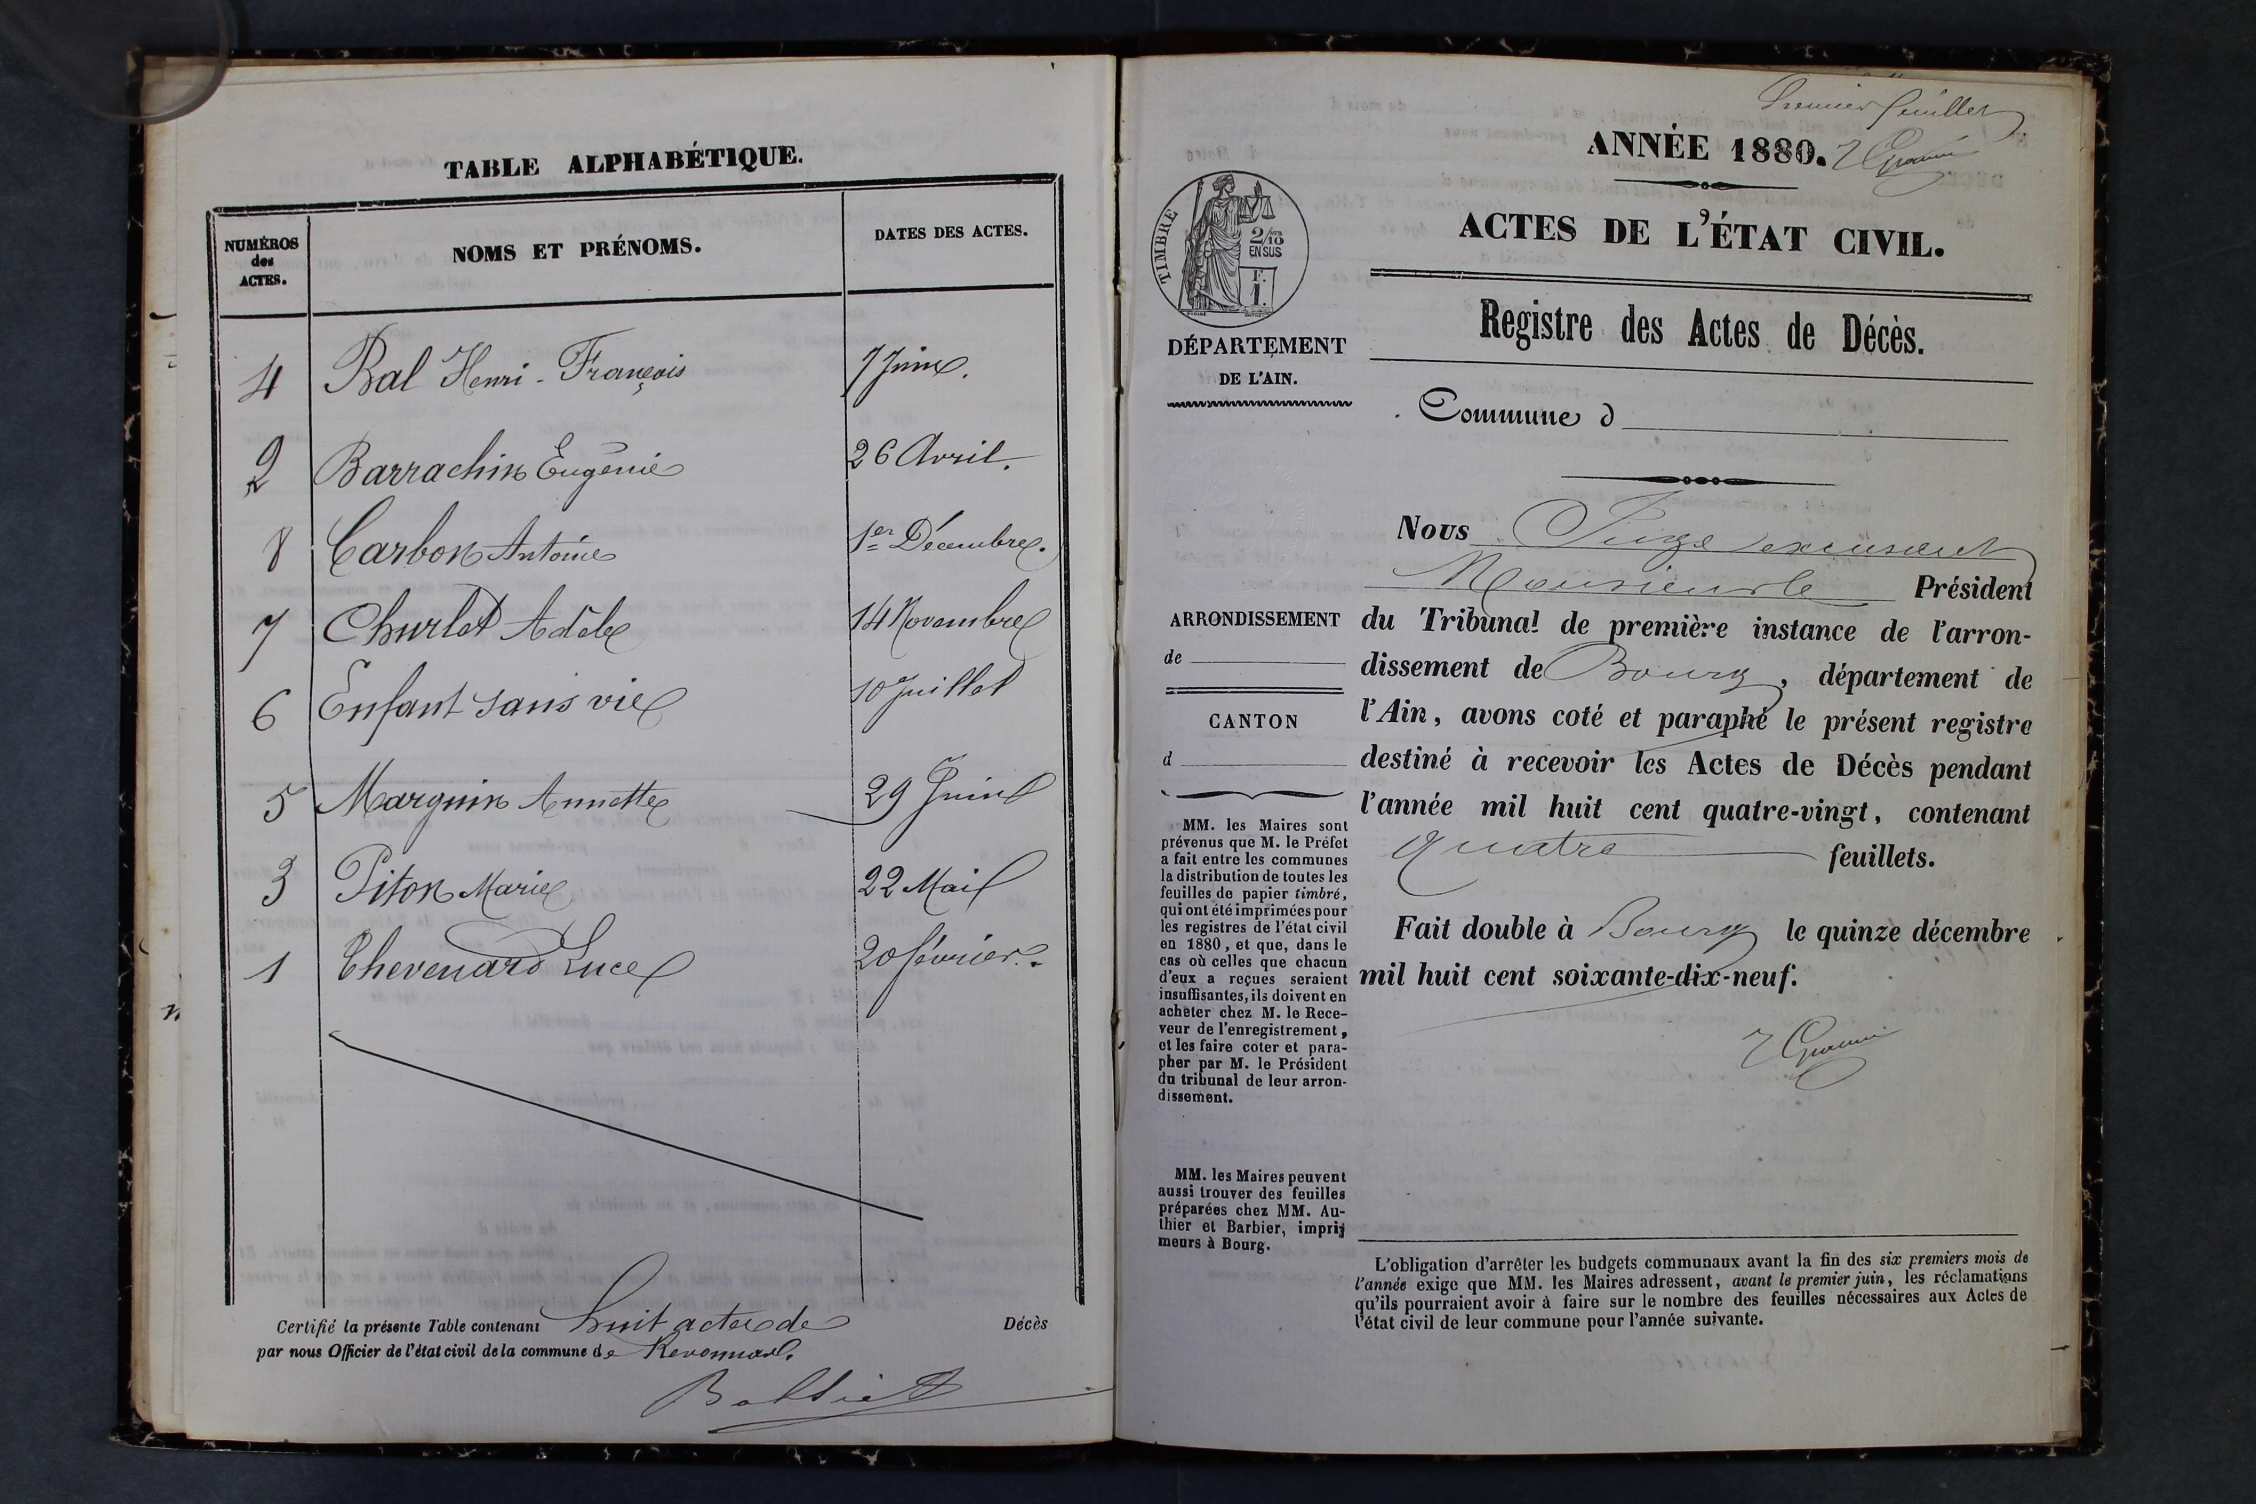 TABLE ALPHABÉTIQUE.
NUMÉROS des ACTES. NOMS ET PRÉNOMS. DATES DES ACTES.
4 Bal Henri-François 7 Juin.
2 Barrachin Eugénie 26 Avril.
8 Carbon Antoine 1er Décembre.
7 Churlet Adèle 14 Novembre
6 Enfant sans vie 10 Juillet
5 Marguin Annette 29 Juin
3 Piton Marie 22 Mai
1 Thevenard Luce 20 février.
Certifié la présente Table contenant huit actes de Décès
par nous Officier de l'état civil de la commune de
Premier feuillet
ANNÉE 1880.
ACTES DE L'ÉTAT CIVIL.
Registre des Actes de Décès.
Commune d
TIMBRE
2/10 EN SUS
F. 1.
DÉPARTEMENT
DE L'AIN.
ARRONDISSEMENT
de
CANTON
d
MM. les Maires sont
prévenus que M. le Préfet
a fait entre les communes
la distribution de toutes les
feuilles de papier timbré,
qui ont été imprimées pour
les registres de l'état civil
en 1880, et que, dans le
cas où celles que chacun
d'eux a reçues seraient
insuffisantes, ils doivent en
acheter chez M. le Rece-
veur de l'enregistrement,
et les faire coter et para-
pher par M. le Président
du tribunal de leur arron-
dissement.
MM. les Maires peuvent
aussi trouver des feuilles
préparées chez MM. Au-
thier et Barbier, impri-
meurs à Bourg.
Nous Juge
Monsieur le Président
du Tribunal de première instance de l'arron-
dissement de Bourg, département de
l'Ain, avons coté et paraphé le présent registre
destiné à recevoir les Actes de Décès pendant
l'année mil huit cent quatre-vingt, contenant
quatre feuillets.
Fait double à Bourg le quinze décembre
mil huit cent soixante-dix-neuf.
L'obligation d'arrêter les budgets communaux avant la fin des six premiers mois de
l'année exige que MM. les Maires adressent, avant le premier juin, les réclamations
qu'ils pourraient avoir à faire sur le nombre des feuilles nécessaires aux Actes de
l'état civil de leur commune pour l'année suivante.